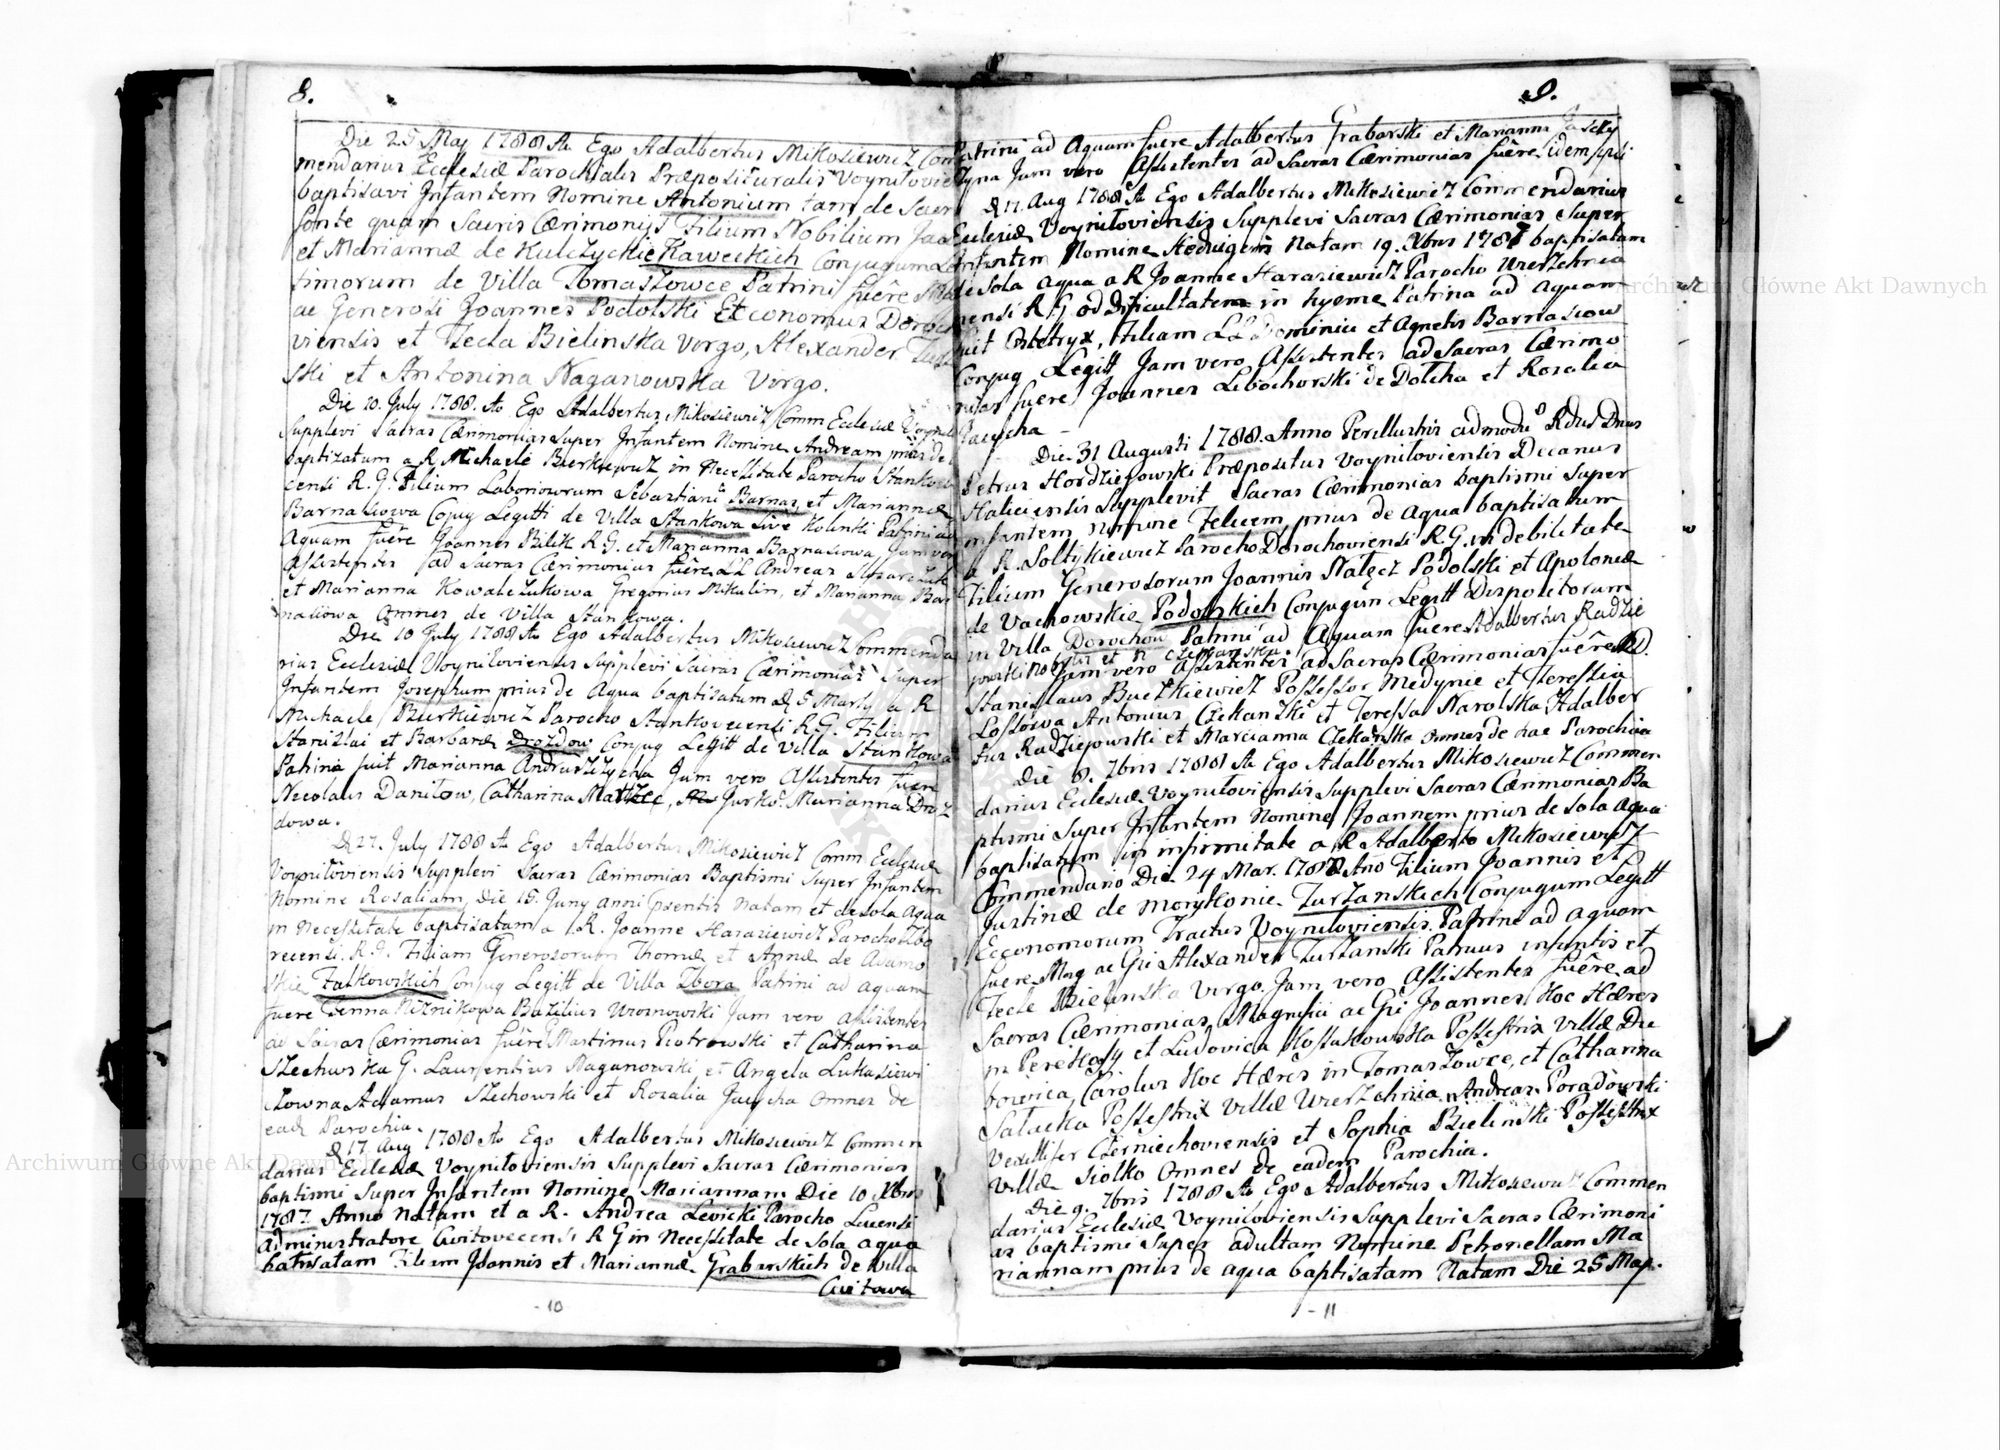 8.
Die 25 May 1788 Ao Ego Adalbertus Mikosiewicz Com
mendarius Ecclesiæ Parochialis Præposituralis Voynilovie
baptisavi Infantem Nomine Antonium tam de Sacr
fonte quam Sacris Cærimonijs Filium Nobilium
et Mariannæ de Kulczyckie Kaweckich Conjugum
timorum de Villa Tomaszowce Patrini fuêre
ac Generosi Joannes Podolski Economus Doroch
viensis et Tecla Bielinska Virgo, Alexander
ski et Antonina Naganowska Virgo.
Die 10. July 1788. Ao Ego Adalbertus Mikosiewicz Comm Ecclesiæ Voynil
Supplevi Sacras Cærimonias Super Infantem Nomine Andream prius de
baptizatum a R Michaele Bierkiewicz in Necessitate Parocho Stankow
censi R. G. Filium Laboriosorum Sebastiani Barnas, et Mariannæ
Barnasiowa Conjug Legitti de Villa Stankowa sive Kolinki Patrini ad
Aquam fuêre Joannes Bilik R G. et Marianna Barnasiowa, Jam vero
Assistentes ad Sacras Cærimonias fuêre LL Andreas
et Marianna Kowalczukowa Gregorius Mikulin, et Marianna Bar
nasiowa Omnes de Villa Stankowa.
Die 10 July 1788 Ao Ego Adalbertus Mikosiewicz Commenda
rius Ecclesiæ Voyniloviensis Supplevi Sacras Cærimonias Super
Infantem Josephum prius de Aqua baptisatum D. 5 Marty a R
Michaele Bierkiewicz Parocho Stankovecensi R. G. Filium
Stanislai et Barbaræ Drozdow Conjug Legitt de Villa Stankowa
Patrina fuit Marianna Andruszczycha Jam vero Assistentes fuere
Nicolaus Danilow, Catharina Jurko. Marianna Droz
dowa.
D 27. July 1788 Ao Ego Adalbertus Mikosiewicz Comm Ecclesiæ
Voyniloviensis Supplevi Sacras Cærimonias Baptismi Super Infantem
Nomine Rosaliam, Die 15. Juny anni præsentis natam et de sola Aqua
in Necessitate baptisatam a R. Joanne Harasiewicz Parocho Zbo
recensi. R. G. Filiam Generosorum Thomæ et Annæ de Adamo
skie Falkowskich Conjug Legitt de Villa Zbora Patrini ad aquam
fuere Bazilius Woznowski Jam vero assistentes
ad Sacras Cærimonias fuêre Martinus Piotrowski et Catharina
Szechwska G. Laurentius Naganowski, et Angela Lukasiewi
czowna Adamus Szechowski et Rosalia Omnes de
ead Parochia.
D 17. Aug 1788 Ao Ego Adalbertus Mikosiewicz Commen
darius Ecclesiæ Voyniloviensis Supplevi Sacras Cærimonias
baptismi Super Infantem Nomine Mariannam Die 10 Xbris
1787 Anno Natam et a R. Andrea Levicki Parocho
Administratore Cwitovecensi R G in Necessitate de Sola aqua
batisatam Filiam Joannis et Mariannæ Grabarskich de Villa
Cwitowa
- 10
9.
Patrini ad Aquam fuere Adalbertus Grabarski et Marianna
Jam vero Assistentes ad Sacras Cærimonias fuêre Idem
D 17. Aug 1788 Ao Ego Adalbertus Mikosiewicz Commendarius
Ecclesiæ Voyniloviensis Supplevi Sacras Cærimonias Super
Infantem Nomine Hedvigem Natam 19. Xbris 1787 baptisatam
de Sola aqua a R Joanne Harasiewicz Parocho Wierzchnia
nensi R. G ob Dificultatem in hyeme Patrina ad aquam
fuit Obstetryx, Filiam LL Dominici et Agnetis Barnasiow
Conjug Legitt Jam vero Assistentes ad Sacras Cærimo
nias fuere Joannes Libochorski de Dolcha et Rosalia
Die 31 Augusti 1788. Anno Perillustris admodu Rdus Dnus
Petrus Hordziejowski Præpositus Voyniloviensis Decanus
Haliciensis Supplevit Sacras Cærimonias baptismi Super
infantem nomine Felicem, prius de Aqua baptisatum
a R. Soltykiewicz Parocho Dorochoviensi R. G. in debilitate
Filium Generosorum Joannis Nalęcz Podolski et Apoloniæ
de Vachowskie Podolskich Conjugum Legitt Dispositorum
in Villa Dorochow Patrini ad Aquam fuere Adalbertus Radzie
jowski Nobilis et N Czekanska.
Jam vero Assistentes ad Sacras Cærimonias fuêre D.
Stanislaus Buczkiewicz Possessor Medynie et Teressia
Lossowa Antonius Czekanski et Teressa Narolska Adalber
tus Radziejowski et Marcianna Czekanska omnes de hac Parochia
Die 8. 7bris 1788 Ao Ego Adalbertus Mikosiewicz Commen
darius Ecclesiæ Voyniloviensis Supplevi Sacras Cærimonias Ba
ptismi Super Infantem Nomine Joannem prius de sola Aqua
baptisatum in infirmitate a R Adalberto Mikosiewicz
Commendario Die 24 Mar. 1788 Ano Filium Joannis et
Justinæ de Morykonie Turzanskich Conjugum Legitt
Economorum Tractus Voyniloviensis. Patrini ad aquam
fuere Mag ac Gsi Alexander Turzanski Patruus infantis et
Tecle Bielinska Virgo. Jam vero Assistentes fuêre ad
Sacras Cærimonias Magnifici ac Gsi Joannes Koc Hæres
in Perekosy et Ludovica Kossakowska Possestrix Villæ Du
bowica, Carolus Koc Hæres in Tomaszowce, et Catharina
Salacka Possestrix Villæ Wierzchnia Andreas Poradowski
Vexillifer Czerniechoviensis et Sophia Bielinski Possestrix
Villæ Siolko Omnes de eadem Parochia.
Die 9. 7bris 1788 Ao Ego Adalbertus Mikosiewicz Commen
darius Ecclesiæ Voyniloviensis Supplevi Sacras Cærimoni
as baptismi Super adultam Nomine Petronellam Ma
riannam prius de aqua baptisatam Natam Die 25 May.
- 11
Archiwum Główne Akt Dawnych
Archiwum Główne Akt Dawnych